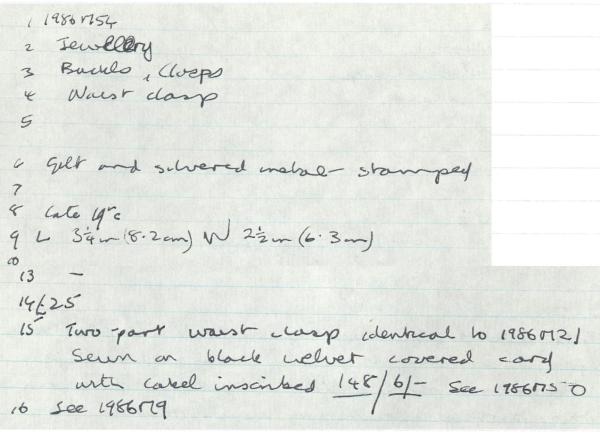 1 1986M54
2 Jewellery
3 Buckles, Clasps
4 Waist clasp
5
6 Gilt and silvered metal - stamped
7
8 Late 19thc
9 L 3¼in (8.2cm) W 2½in (6.3cm)
13 -
14 £25
15 Two-part waist clasp identical to 1986M21
Sewn on black velvet covered card
with label inscribed 148/6/- See 1986M50
16 See 1986M9